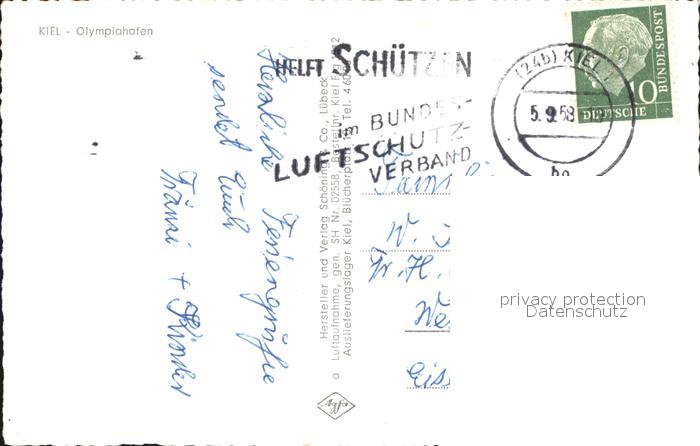 KIEL - Olympiahafen
HELFT SCHÜTZEN
im BUNDES-
LUFTSCHUTZ-
VERBAND
(24b) KIEL
5.9.58
DEUTSCHE
BUNDESPOST
10
Herzliche Feriengrüße
sendet Euch
Fränzi + Kinder
Hersteller und Verlag Schöning & Co., Lübeck
Luftaufnahme, gen. SH Nr. 02558, Bestellnr. Kiel
Auslieferungslager Kiel, Blücherplatz Tel.
Fami
W.
Fr. H.
We
privacy protection
Datenschutz